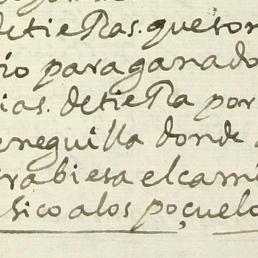 detieRas. queson
io para ganado
ias. detieRa por
eneguilla donde
rabiesa elcami
sico alos poçuelo